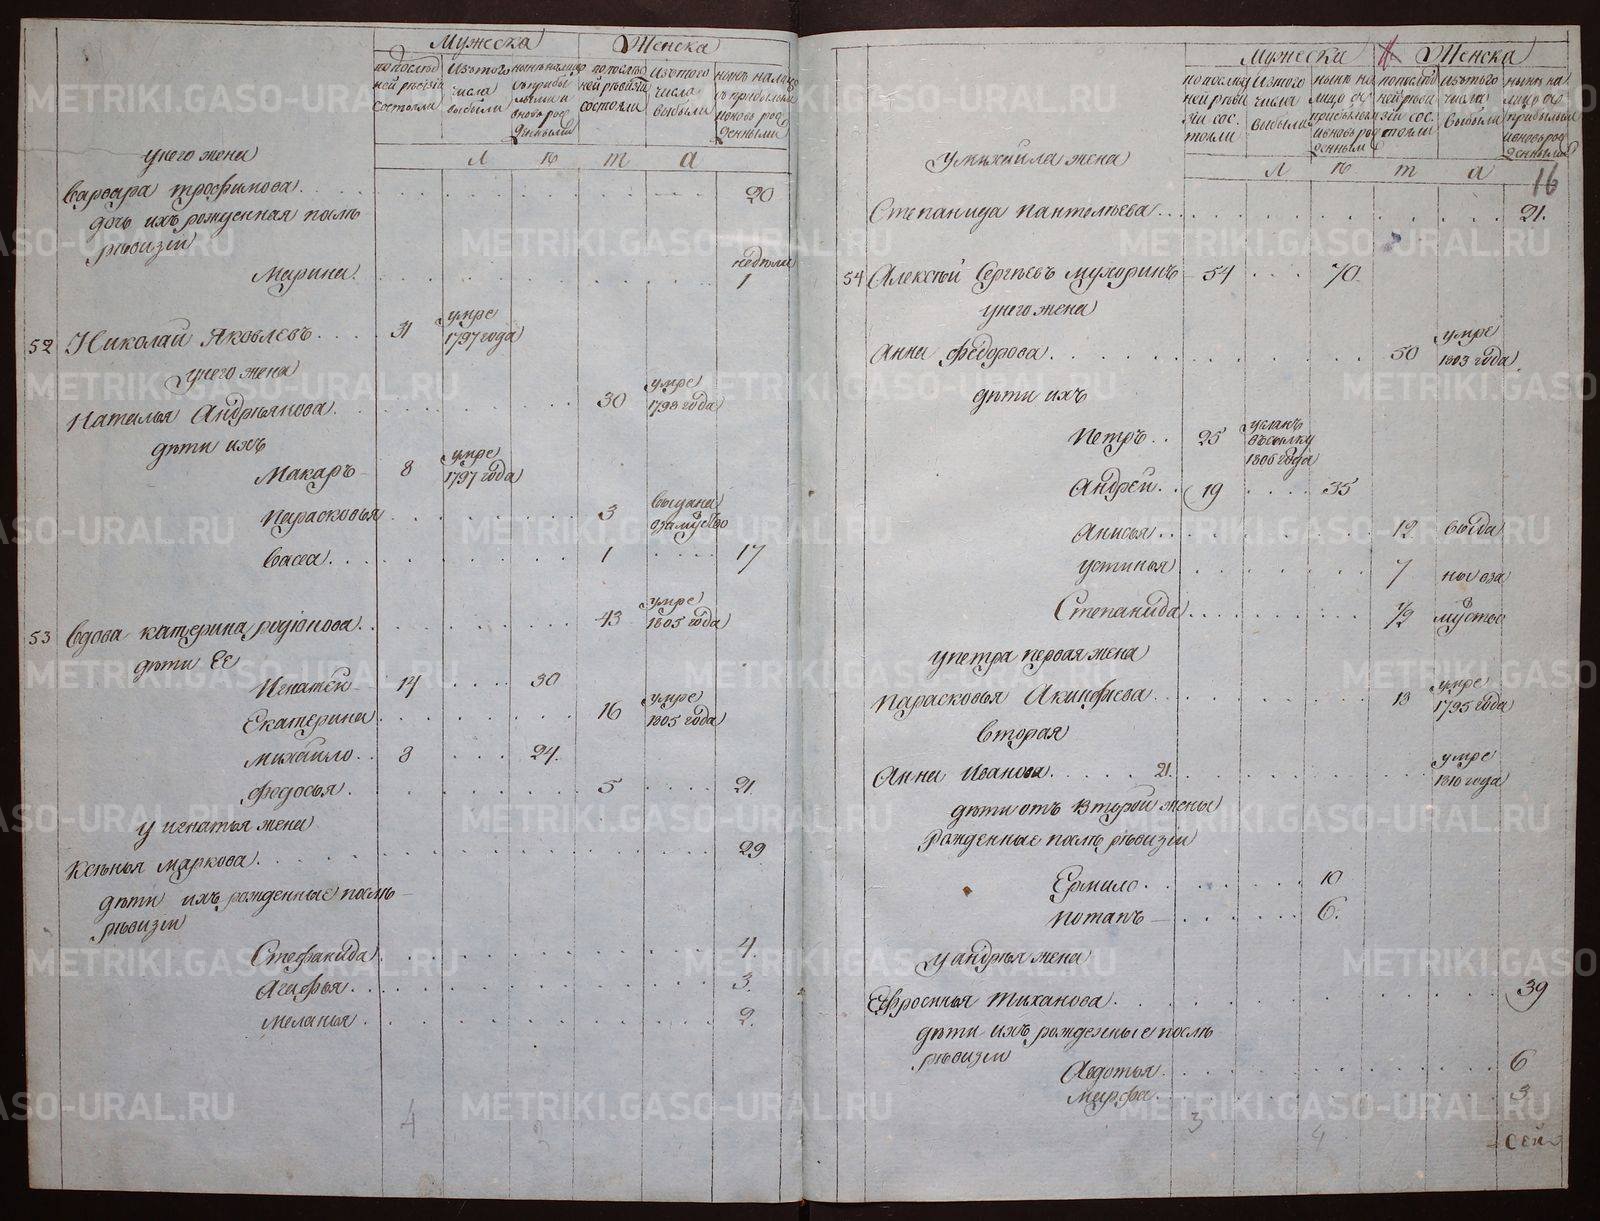 Мужеска Женска
по послѣдней ревизіи состояли
изътого числа выбыли
нынѣ налицо съ прибылыми и вновь рожденными
по послѣдней ревизіи состояли
изътого числа выбыли
нынѣ налицо съ прибылыми и вновь рожденными
л ѣ т а
унего жена
Варвара трофимова 20
дочь ихъ рожденная послѣ
ревизіи
недели
Марина 1
52 Николай Яковлевъ 31 умре 1797 года
унего жена
Наталья Андреянова 30 умре 1798 года
дѣти ихъ
Макаръ 8 умре 1797 года
Парасковья 3 выдана взамуство
Васса 1 17
53 Вдова катерина родіонова 43 умре 1805 года
дѣти Ее
Игнатей 14 30
Екатерина 16 умре 1805 года
михайло 8 24
федосья 5 21
у игнатья жена
Ксенья маркова 29
дѣти ихъ рожденные послѣ
ревизіи
Стефанида 4
Агафья 3
меланья 2
4 2
Мужеска Женска
по послѣдней ревизіи состояли
изътого числа выбыли
нынѣ налицо съ прибылыми и вновь рожденными
по послѣдней ревизіи состояли
изътого числа выбыли
нынѣ налицо съ прибылыми и вновь рожденными
л ѣ т а
16
умихаила жена
Степанида пантелѣева 21
54 Алексѣй Сергѣевъ мухоринъ 54 70
унего жена
Анна федорова 50 умре 1803 года
дѣти ихъ
Петръ 25 усланъ въсылку 1806 года
Андрей 19 35
Анисья 12 выда
устинья 7 ны вза
Степанида 1/2 муство
упетра первая жена
Парасковья Акинфиева 18 умре 1795 года
вторая
Анна Иванова 21 умре 1810 года
дѣти отъ второй жены
рожденные послѣ ревизіи
Ермило 10
потапъ 6
у андрея жена
Ефросинья тиханова 39
дѣти ихъ рожденные послѣ
ревизіи
Авдотья 6
марфа 3
3 4
сей
METRIKI.GASO-URAL.RU